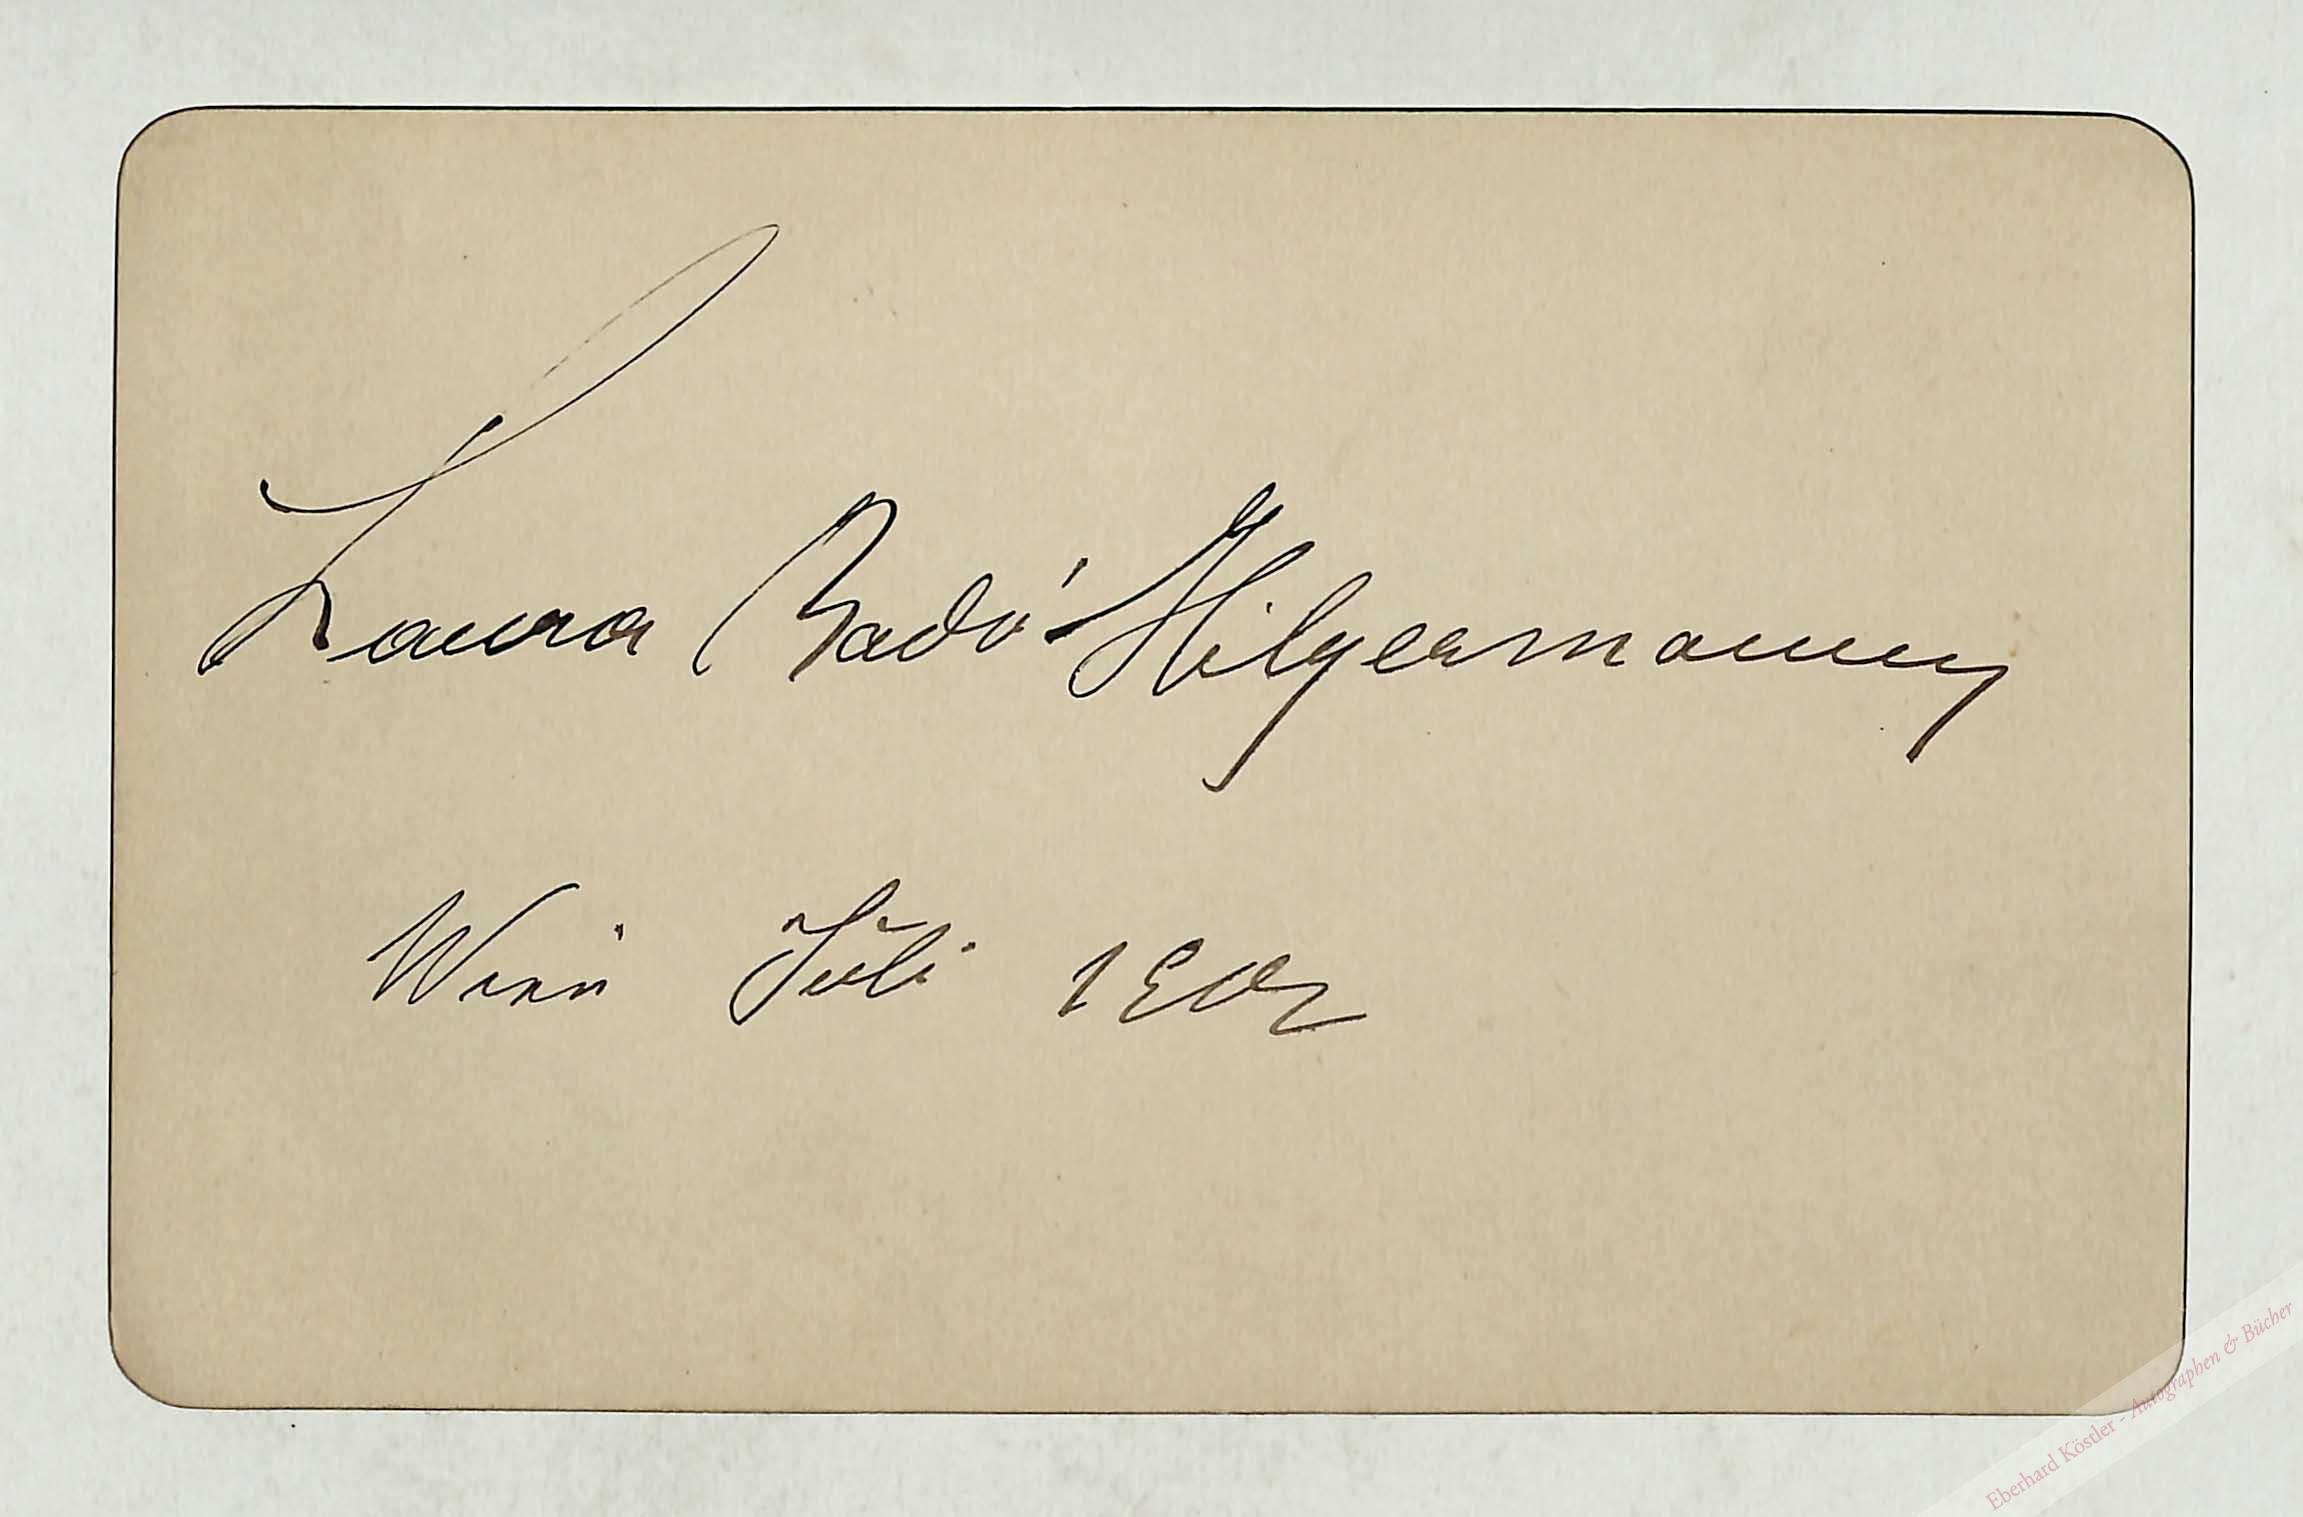 Laura Radó-Hilgermann
Wien Juli 1902
Eberhard Köstler - Autographen & Bücher